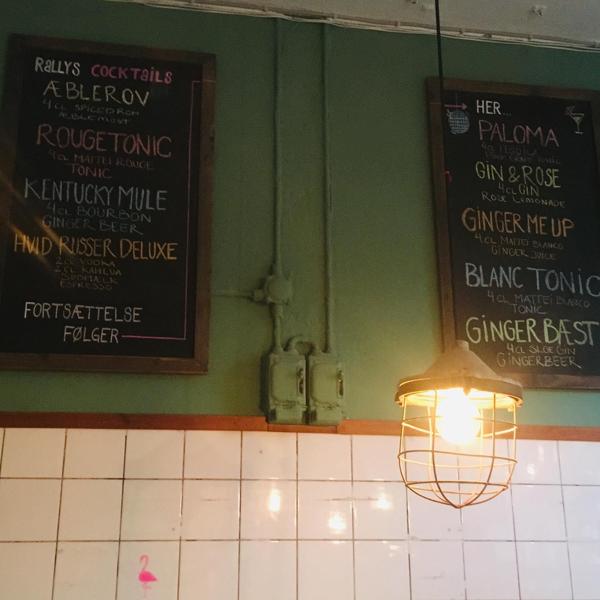 RALLYS COCKTAILS
ÆBLEROV
4 CL SPICED ROM
ÆBLEMOST
ROUGETONIC
4 CL MATTEI ROUGE
TONIC
KENTUCKY MULE
4 CL BOURBON
GINGER BEER
HVID RUSSER DELUXE
2 CL VODKA
2 CL KAHLUA
SØDMÆLK
ESPRESSO
FORTSÆTTELSE
FØLGER
HER...
PALOMA
4 CL TEQUILA
TONIC
GIN & ROSE
4 CL GIN
ROSE LEMONADE
GINGER ME UP
4 CL MATTEI BLANCO
GINGER JUICE
BLANC TONIC
4 CL MATTEI BLANCO
TONIC
GINGERBÆST
4 CL SLOE GIN
GINGERBEER